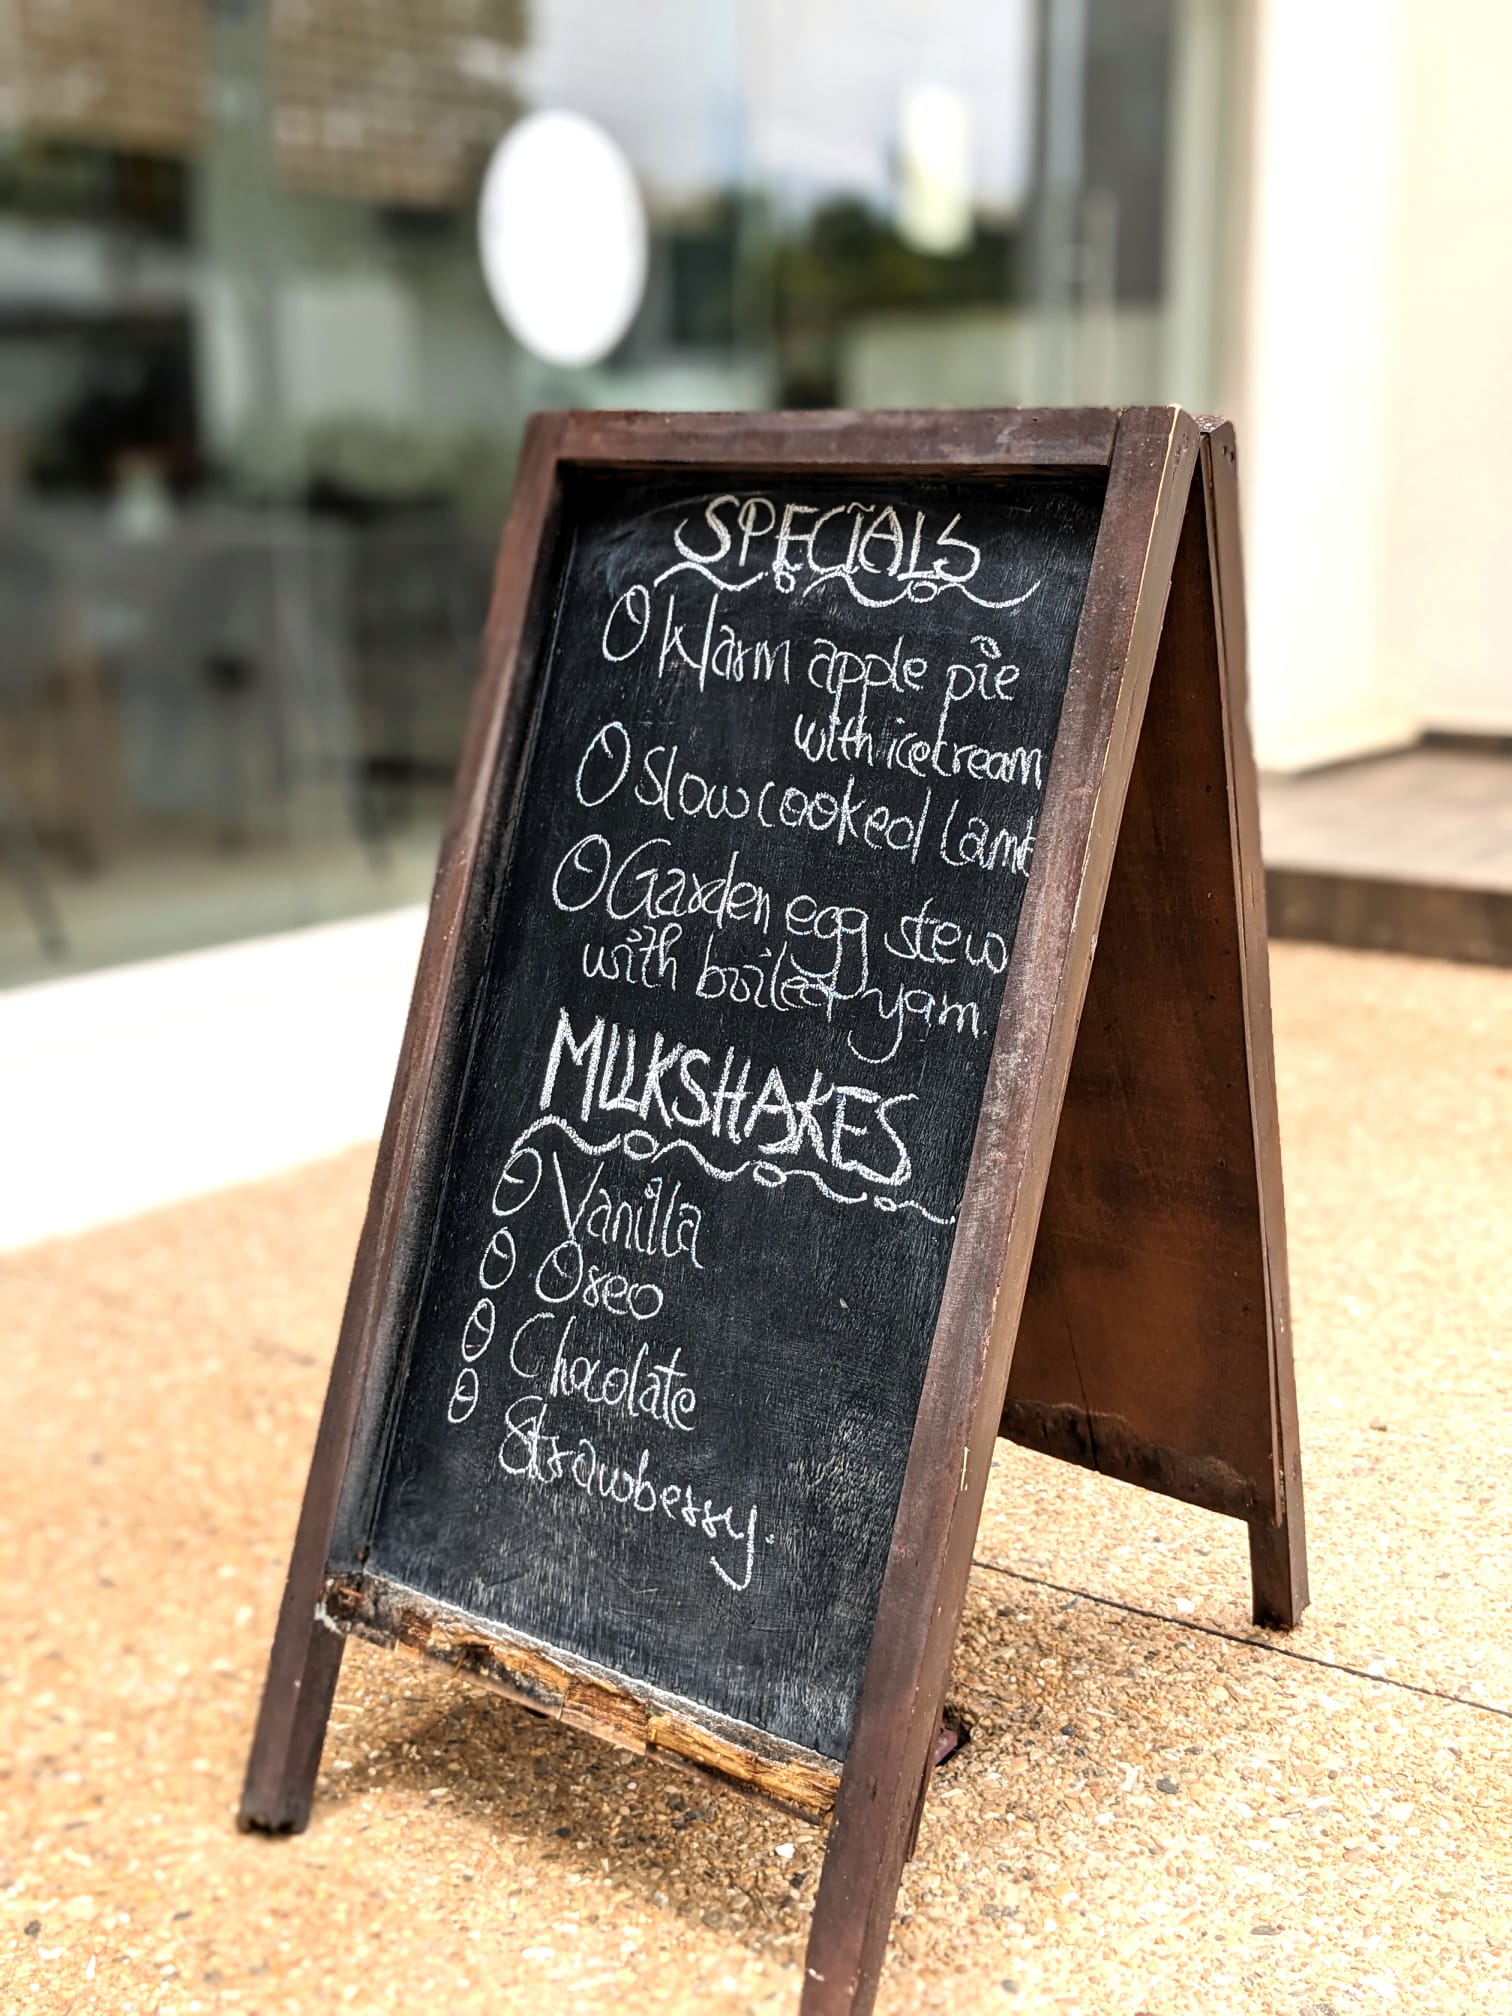 SPECIALS
Warm apple pie
with icecream
Slow cooked lamb
Garden egg stew
with boiled yam.
MILKSHAKES
Vanilla
Oreo
Chocolate
Strawberry.